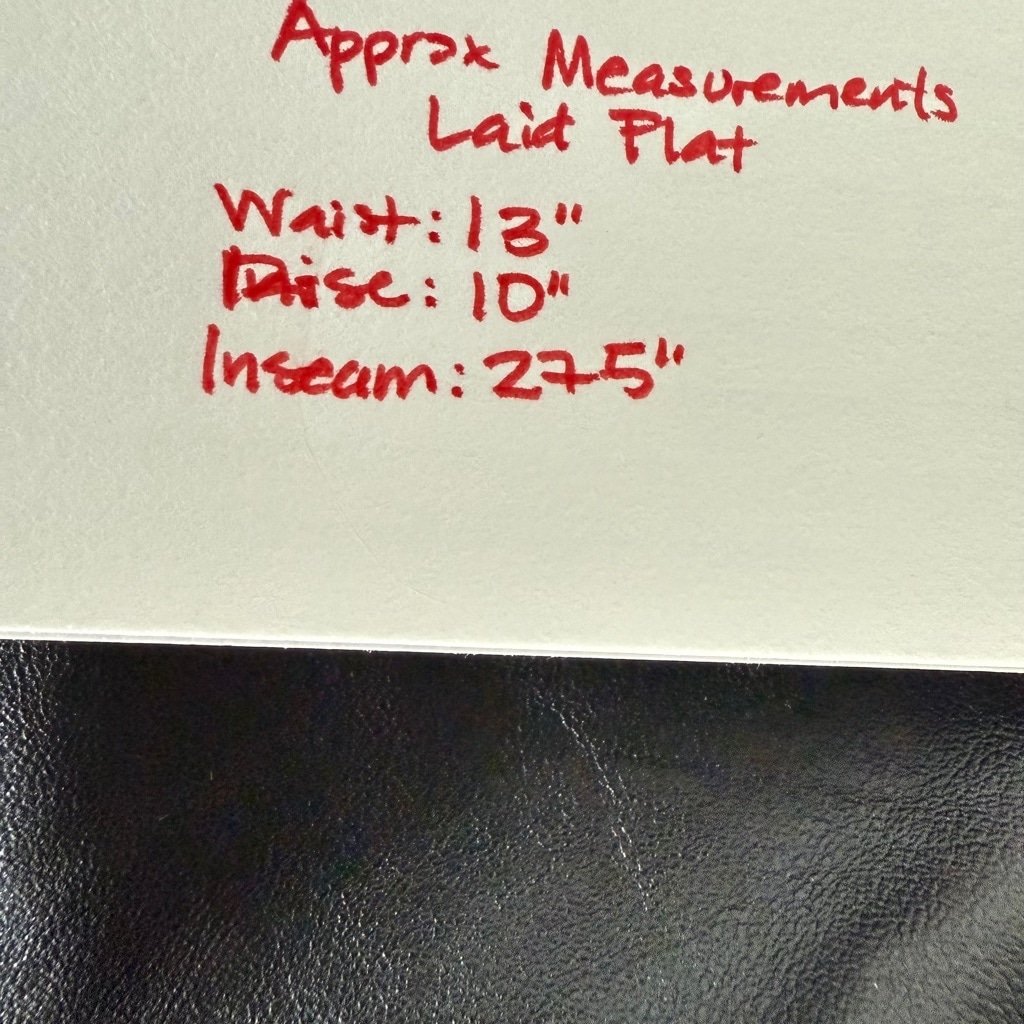 Approx Measurements
Laid Flat
Waist: 13"
Rise: 10"
Inseam: 27.5"